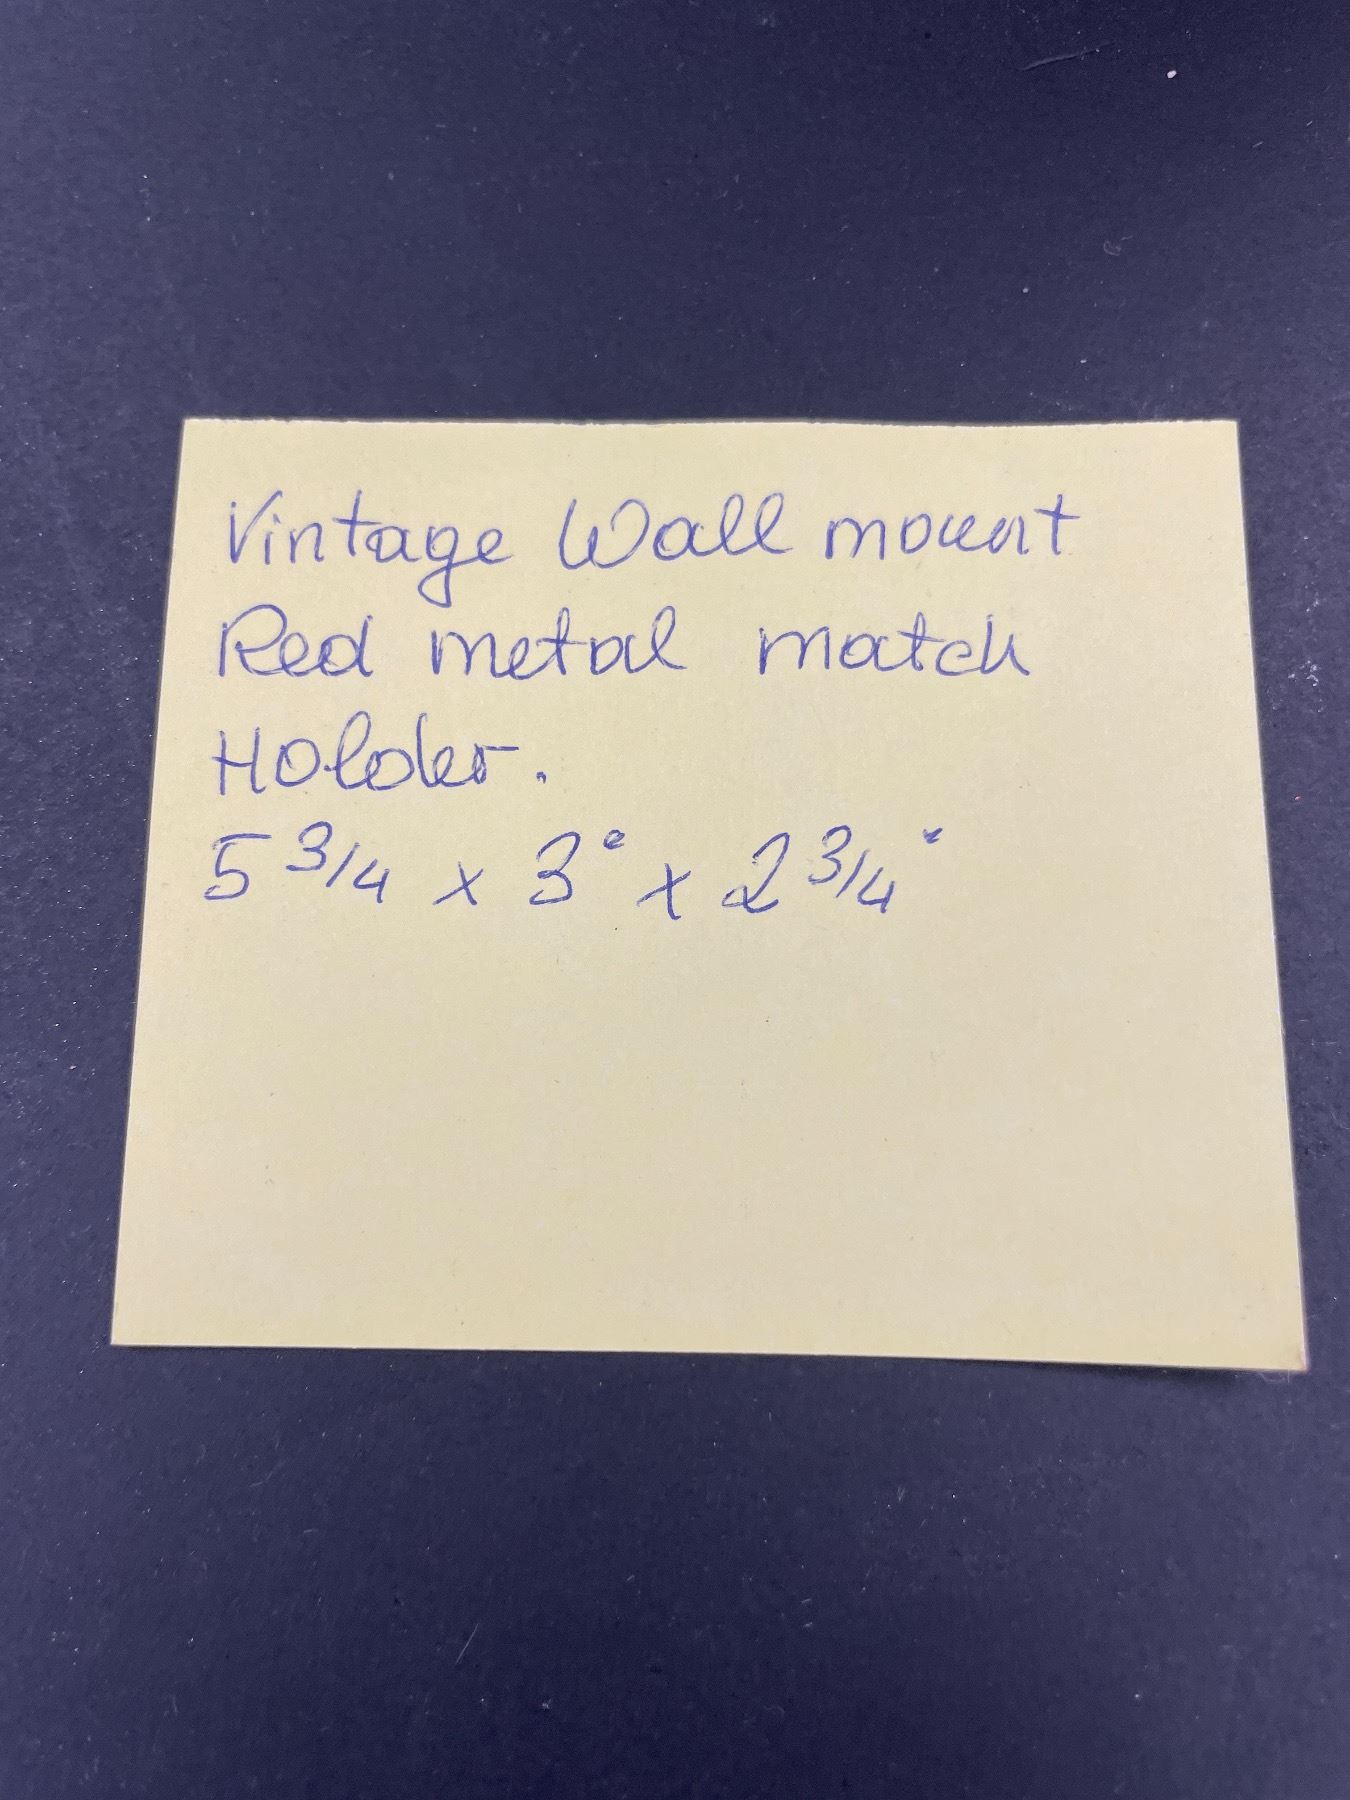 Vintage Wall mount
Red metal match
Holder.
5 3/4 x 3" x 2 3/4"